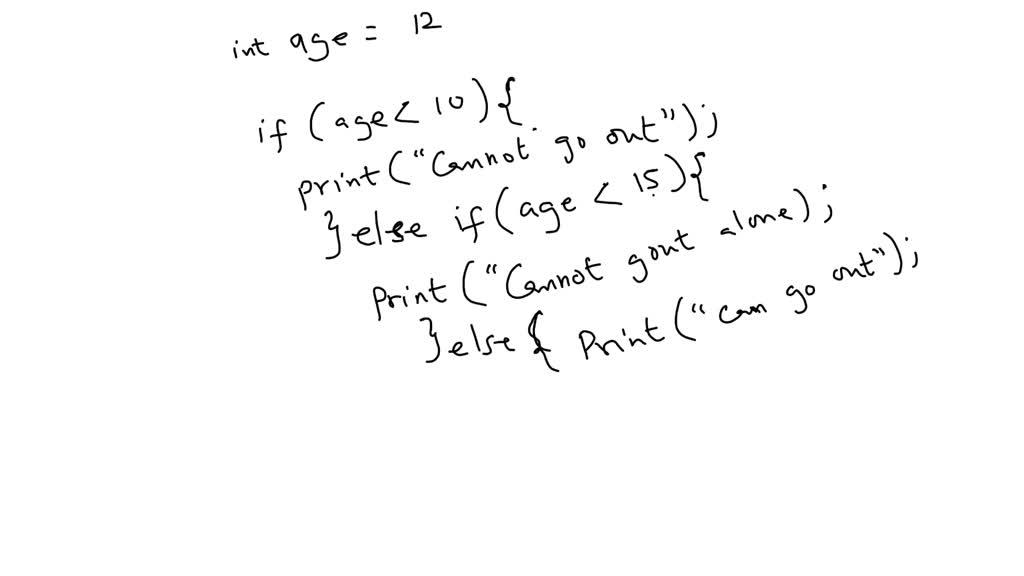 int age = 12
if (age < 10) {
print("Cannot go out");
} else if (age < 15) {
print("Cannot gout alone);
} else { Print("can go out");